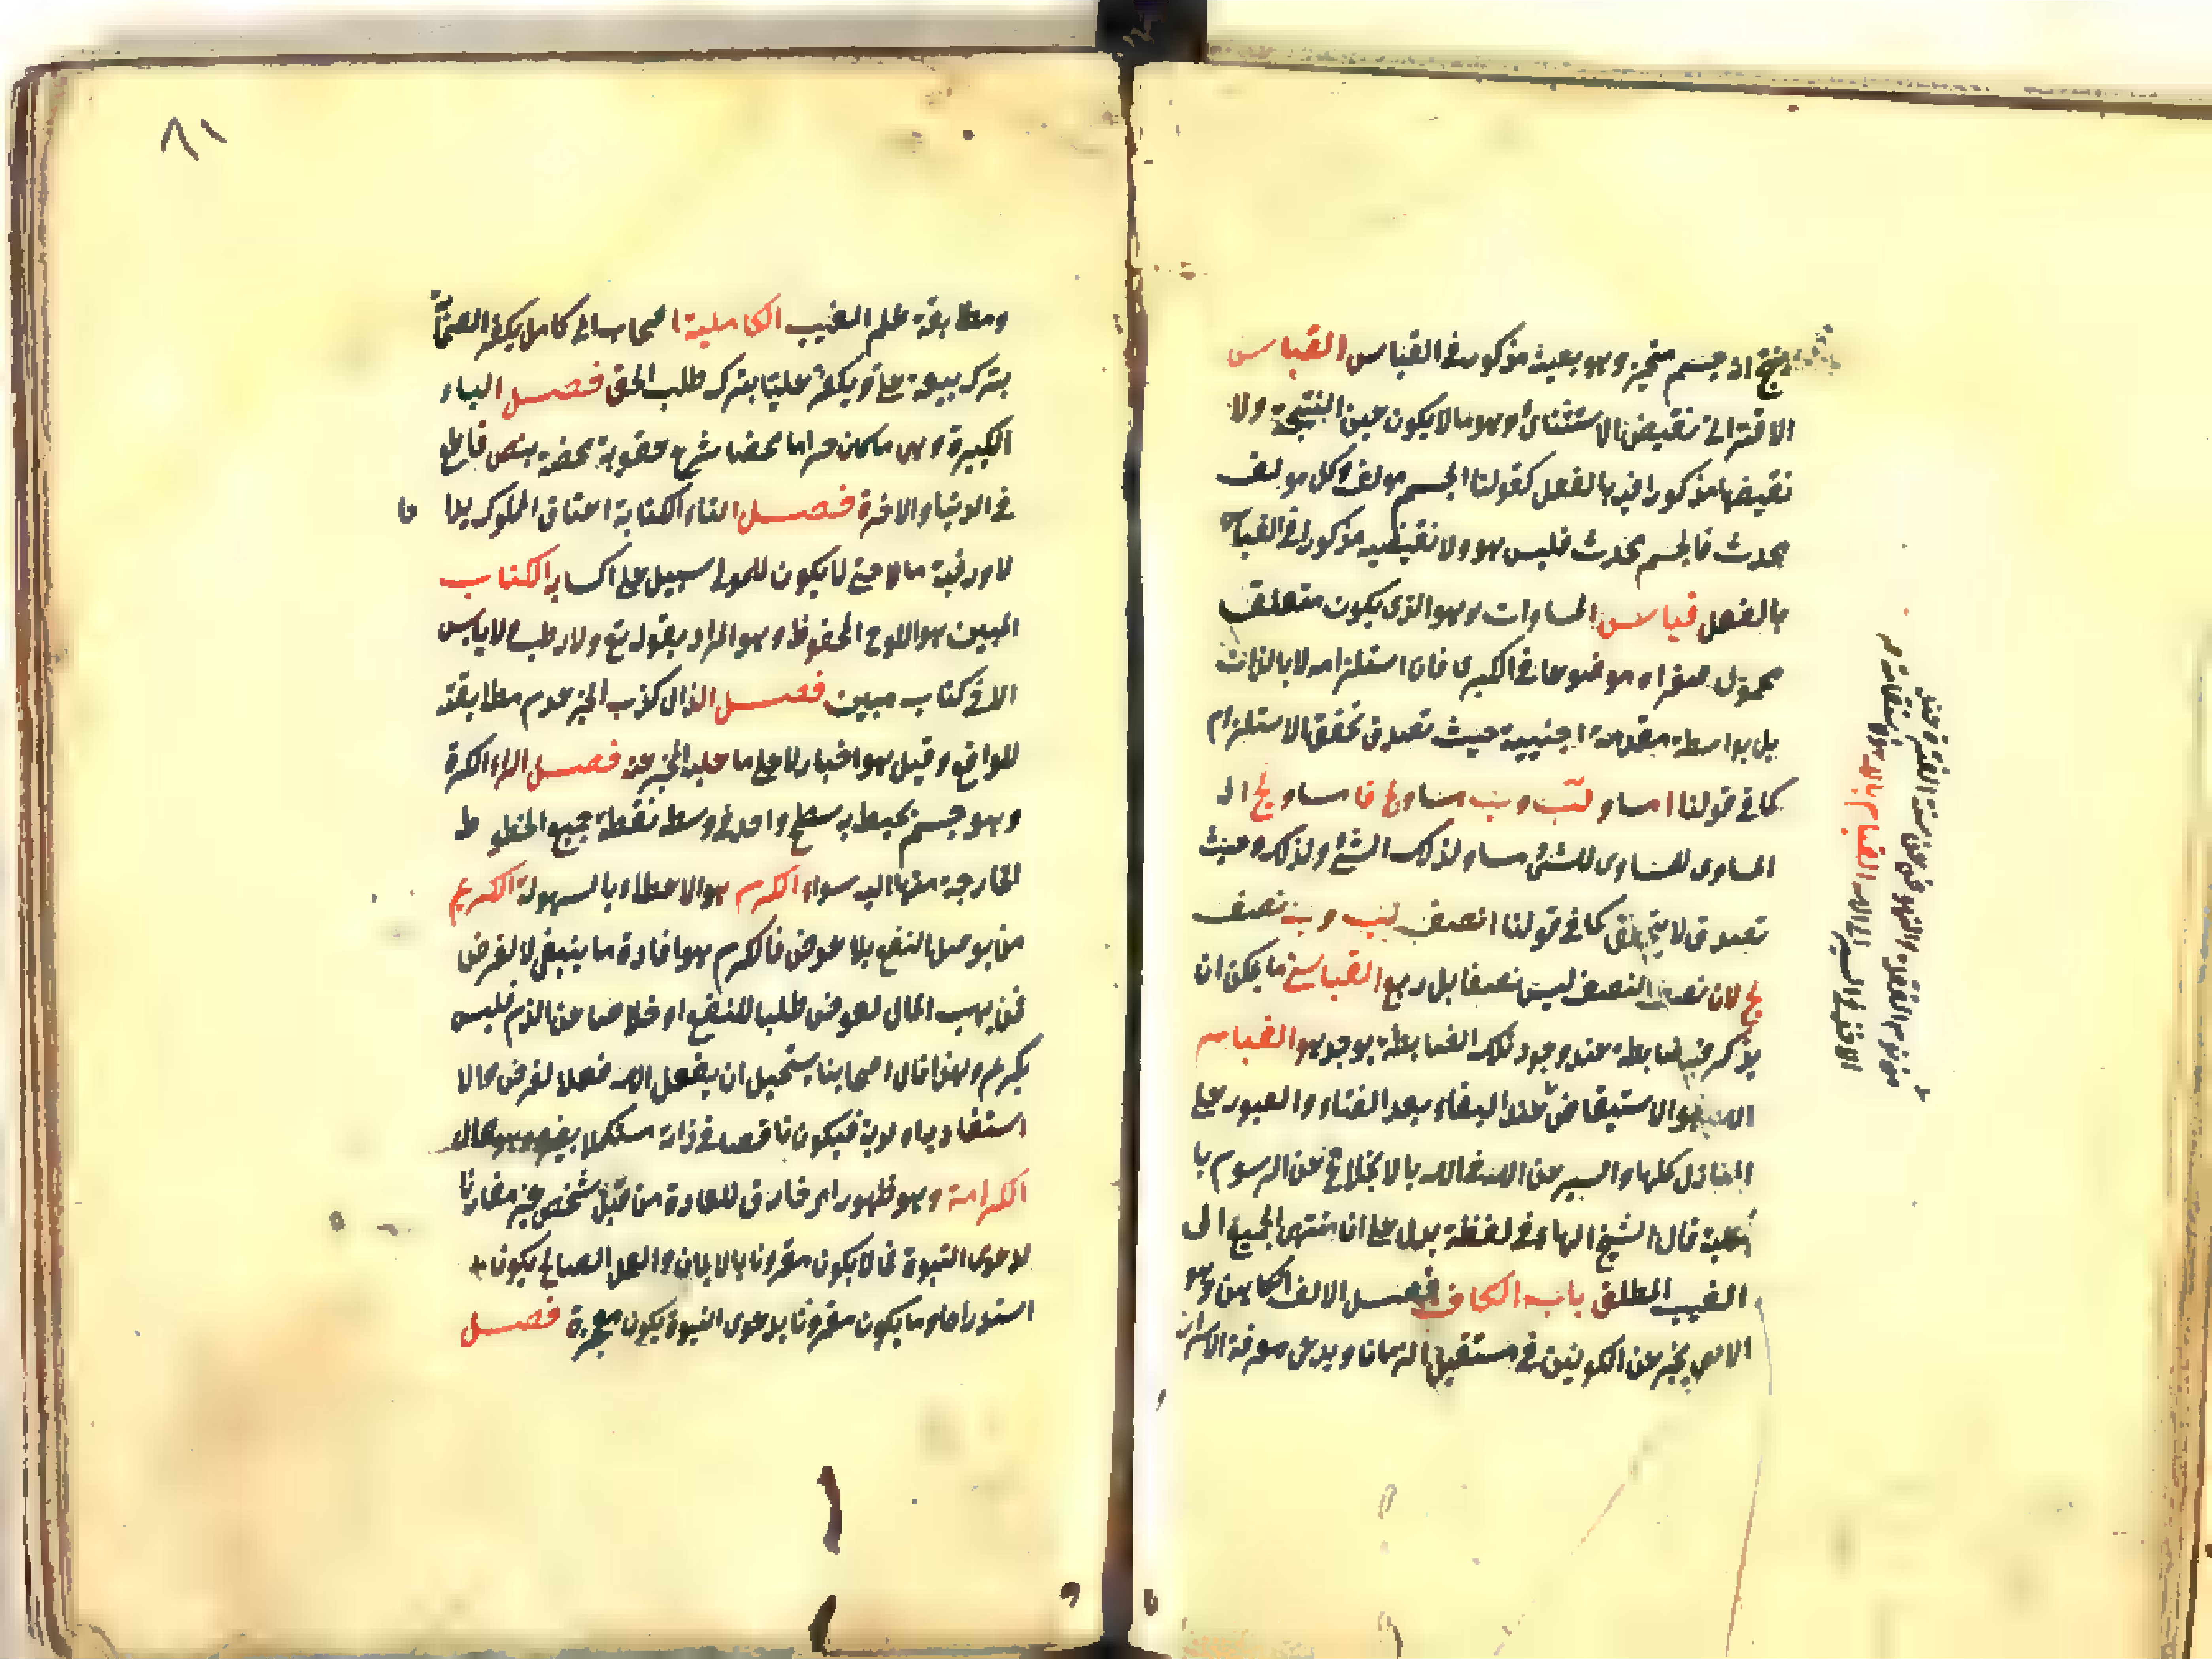 ينتج انه جسم متحيز وهو بعينه مذكور في القياس القياس
الاقتراني نقيض الاستثنائي وهو ما لا يكون عين النتيجة ولا
نقيضها مذكورا فيه بالفعل كقولنا الجسم مولف وكل مولف
محدث فالجسم محدث فليس هو ولا نقيضه مذكورا في القياس
بالفعل قياس المساوات وهو الذي يكون متعلق
محمول صغراه موضوعا في الكبرى فان استلزامه لا بالذات
بل بواسطة مقدمة اجنبية حيث تصدق تحقق الاستلزام
كما في قولنا ا مساو لب وب مساو لج فا مساو لج اذ
المساوي للمساوي للشئ مساو لذلك الشئ ولذلك وحيث
تصدق لا يتحقق كما في قولنا ا نصف لب وب نصف
لج لان نصف النصف ليس نصفا بل ربع القياسي ما يمكن ان
يذكر فيه ضابطة عند وجود تلك الضابطة يوجد هو القيام
لله هو الاستيقاض عند البقاء بعد الفناء والعبور على
المنازل كلها والسير عن الله في الله بالانخلاع عن الرسوم با
لكلية قال الشيخ الهاء في لفظة يدل على ان منتهى الجميع الى
الغيب المطلق باب الكاف فصل الالف الكاهن وهو
الذي يخبر عن الكوئين في مستقبل الزمان ويدعي معرفة الاسرار
ومطابقة علم الغيب الكاملية اصحاب ابي كامل يكفر الصحابة
بترك بيعة علي ويكفر عليا بترك طلب الحق فصل الباء
الكبيرة وهي ما كان حراما محضا شرع عقوبة محضة بنص قاطع
في الدنيا والاخرة فصل التاء الكتابة اعتاق المملوك يدا حا
لا ورقبة مالا حتى لا يكون للمولى سبيل على اكسابه الكتاب
المبين هو اللوح المحفوظ وهو المراد بقوله تع ولا رطب ولا يابس
الا في كتاب مبين فصل الذال كذب الخبر عدم مطابقته
للواقع وقيل هو اخبار لا على ما عليه المخبر عنه فصل الراء الكرة
وهو جسم يحيط به سطح واحد في وسطه نقطة جميع الخطوط
الخارجة منها اليه سواء الكرم هو الاعطاء بالسهولة الكريم
من يوصل النفع بلا عوض فالكرم هو افادة ما ينبغي لا لغرض
فمن يهب المال لعوض طلبا للنفع او خلاصا عن الذم فليس
بكريم ولهذا قال اصحابنا يستحيل ان يفعل الله فعلا لغرض والا
استفاد به اولوية فيكون ناقصا في ذاته مستكملا بغيره وهو محال
الكرامة وهو ظهور امر خارق للعادة من قبل شخص غير مقارنا
لدعوى النبوة فما لا يكون مقرونا بالايمان والعمل الصالح يكون
استدراجا وما يكون مقرونا بدعوى النبوة يكون معجزة فصل